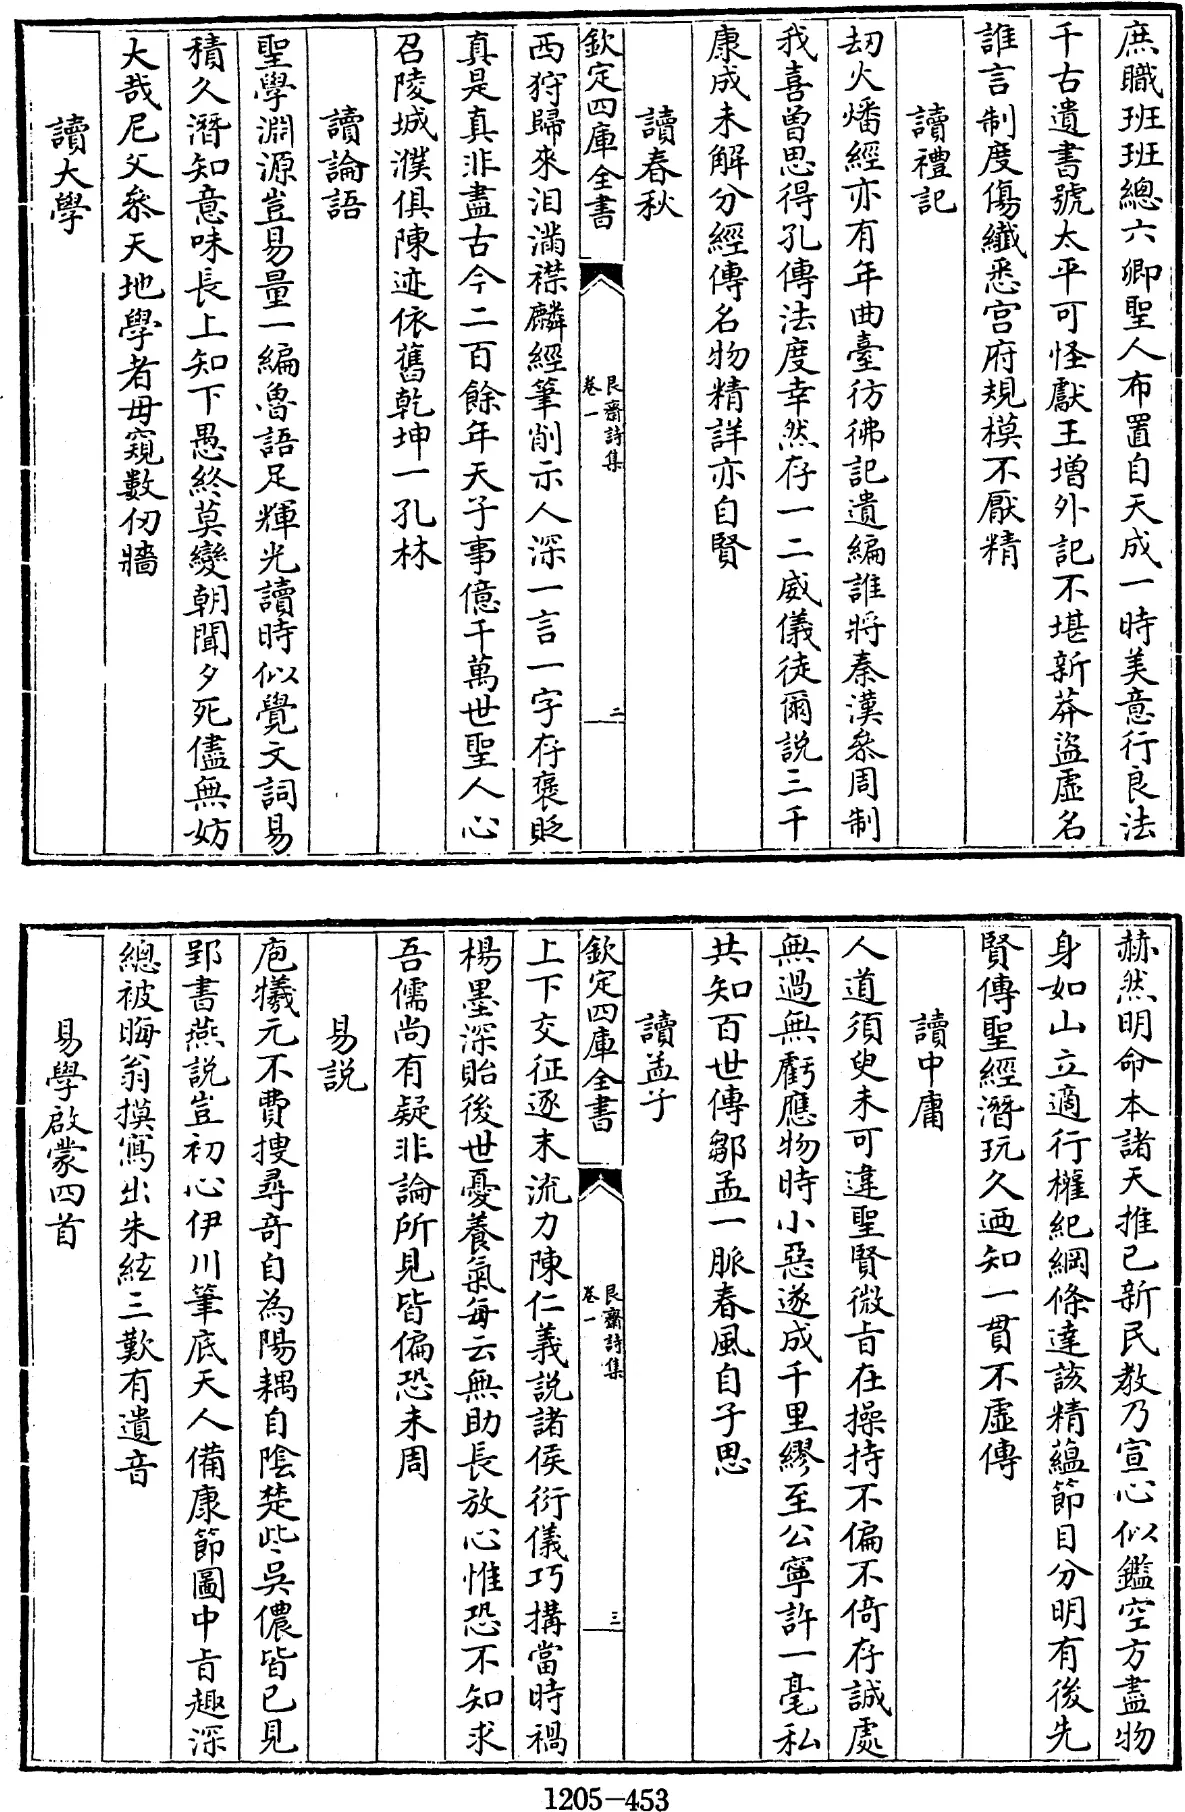 庶職班班總六卿聖人布置自天成一時美意行良法
千古遺書號太平可怪獻王增外記不堪新莽盜虛名
誰言制度傷纎悉宫府規模不厭精
讀禮記
刼火燔經亦有年曲臺彷彿記遺編誰將秦漢叅周制
我喜曾思得孔傳法度幸然存一二威儀徒爾説三千
康成未解分經傳名物精詳亦自賢
讀春秋
欽定四庫全書
艮齋詩集
卷一
二
西狩歸來泪滿襟麟經筆削示人深一言一字存褒貶
真是真非盡古今二百餘年天子事億千萬世聖人心
召陵城濮俱陳迹依舊乾坤一孔林
讀論語
聖學淵源豈易量一編魯語足輝光讀時似覺文詞易
積久潛知意味長上知下愚終莫變朝聞夕死儘無妨
大哉尼父叅天地學者毋窺數仞牆
讀大學
赫然明命本諸天推已新民教乃宣心似鑑空方盡物
身如山立適行權紀綱條達該精蘊節目分明有後先
賢傳聖經潛玩久廼知一貫不虛傳
讀中庸
人道須臾未可違聖賢微㫖在操持不偏不倚存誠處
無過無虧應物時小惡遂成千里繆至公寧許一毫私
共知百世傳鄒孟一脈春風自子思
讀孟子
欽定四庫全書
艮齋詩集
卷一
三
上下交征逐末流力陳仁義説諸侯衍儀巧搆當時禍
楊墨深貽後世憂養氣每云無助長放心惟恐不知求
吾儒尚有疑非論所見皆偏恐未周
易説
庖犧元不費搜尋竒自為陽耦自陰楚些吳儂皆已見
郢書燕説豈初心伊川筆底天人備康節圖中㫖趣深
總被晦翁摸寫出朱絃三歎有遺音
易學啟蒙四首
1205-453